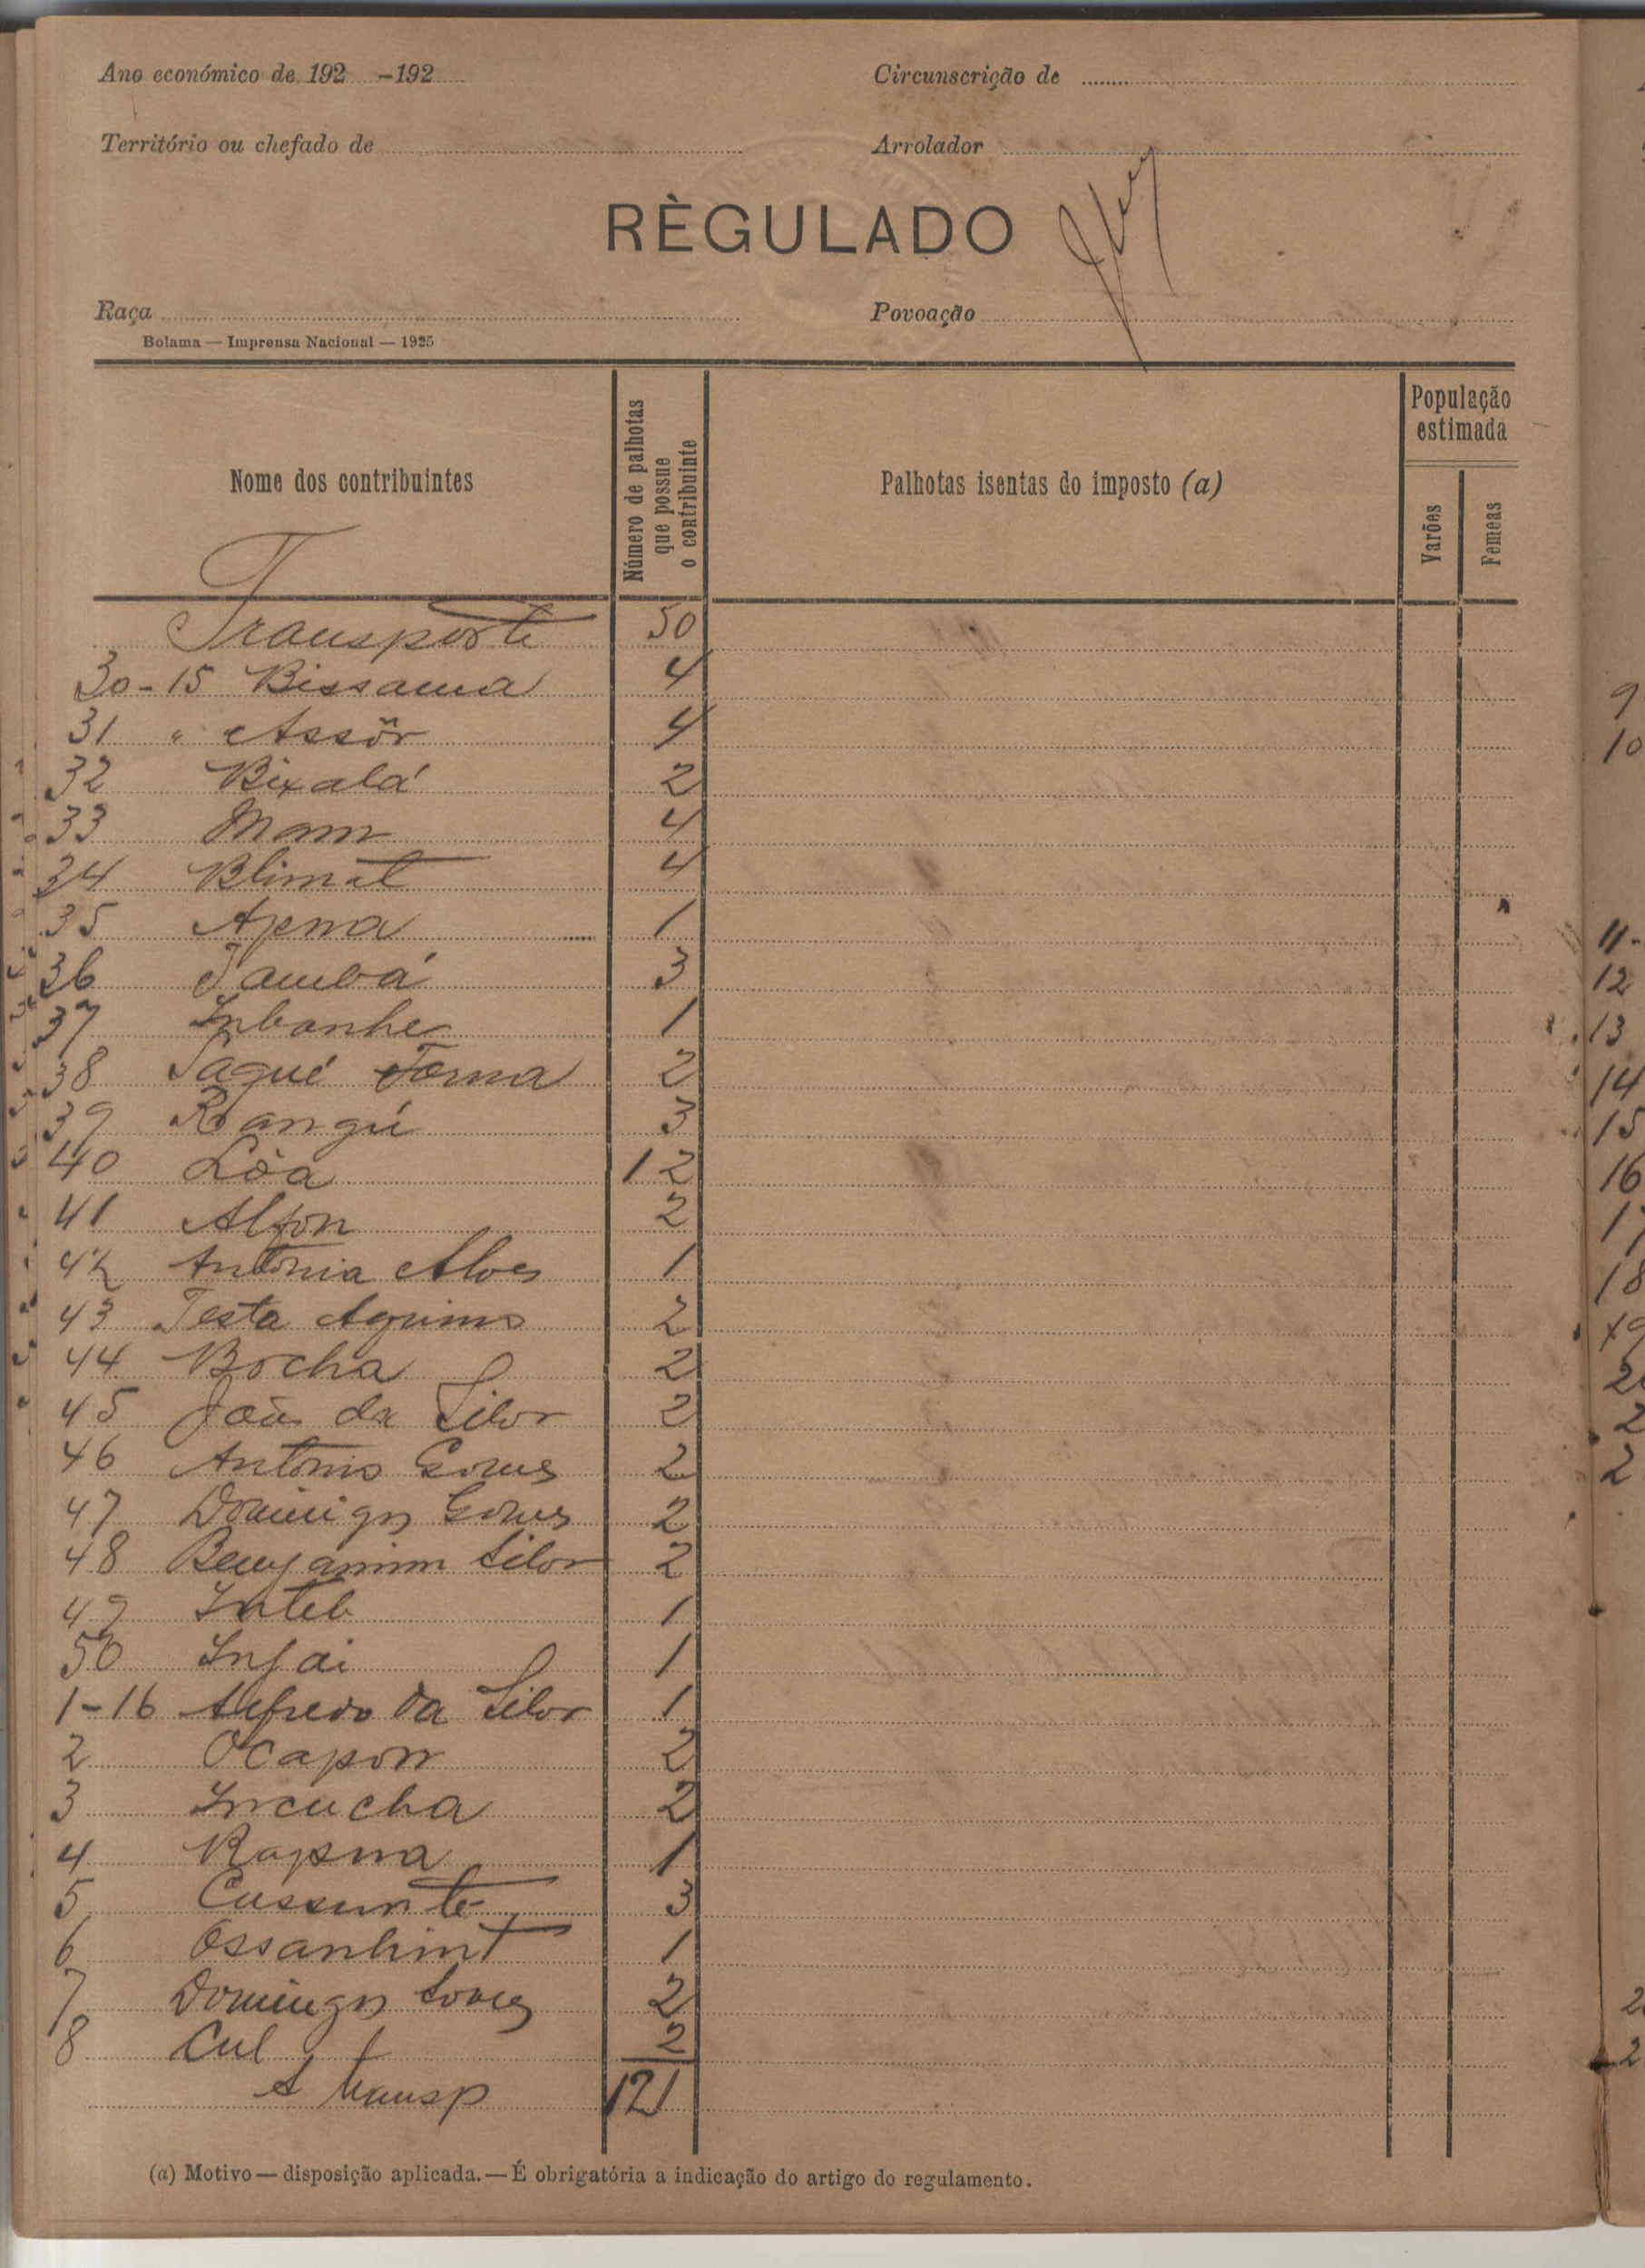 Ano económico de 192 -192
Circunscrição de
Território ou chefado de
Arrolador
RÈGULADO
Raça
Povoação
Bolama — Imprensa Nacional — 1925
Nome dos contribuintes
Número de palhotas que possue o contribuinte
Palhotas isentas do imposto (a)
População estimada
Varões
Femeas
Transporte 50
30-15 Bissauma 4
31 " Assôr 4
32 Bixalá 2
33 Mam 4
34 Blimat 4
35 Apena 1
36 Tambá 3
37 Inbanhe 1
38 Saqué Forna 2
39 Rangú 3
40 Lôa 12
41 Alfon 2
42 Antonia Alves 1
43 Testa 2
44 Bocha 2
45 João da Silva 2
46 Antonio Gomes 2
47 Domingos Gomes 2
48 Benjamim Silva 2
49 Inteb 1
50 Infai 1
1-16 Alfredo da Silva 1
2 Ocapon 2
3 Incucha 2
4 Rapma 1
5 Cussunte 3
6 Ossanhint 1
7 Domingos 2
8 Cul 2
A transp 121
(a) Motivo — disposição aplicada. — É obrigatória a indicação do artigo do regulamento.
9
10
11-
12
13
14
15
16
18